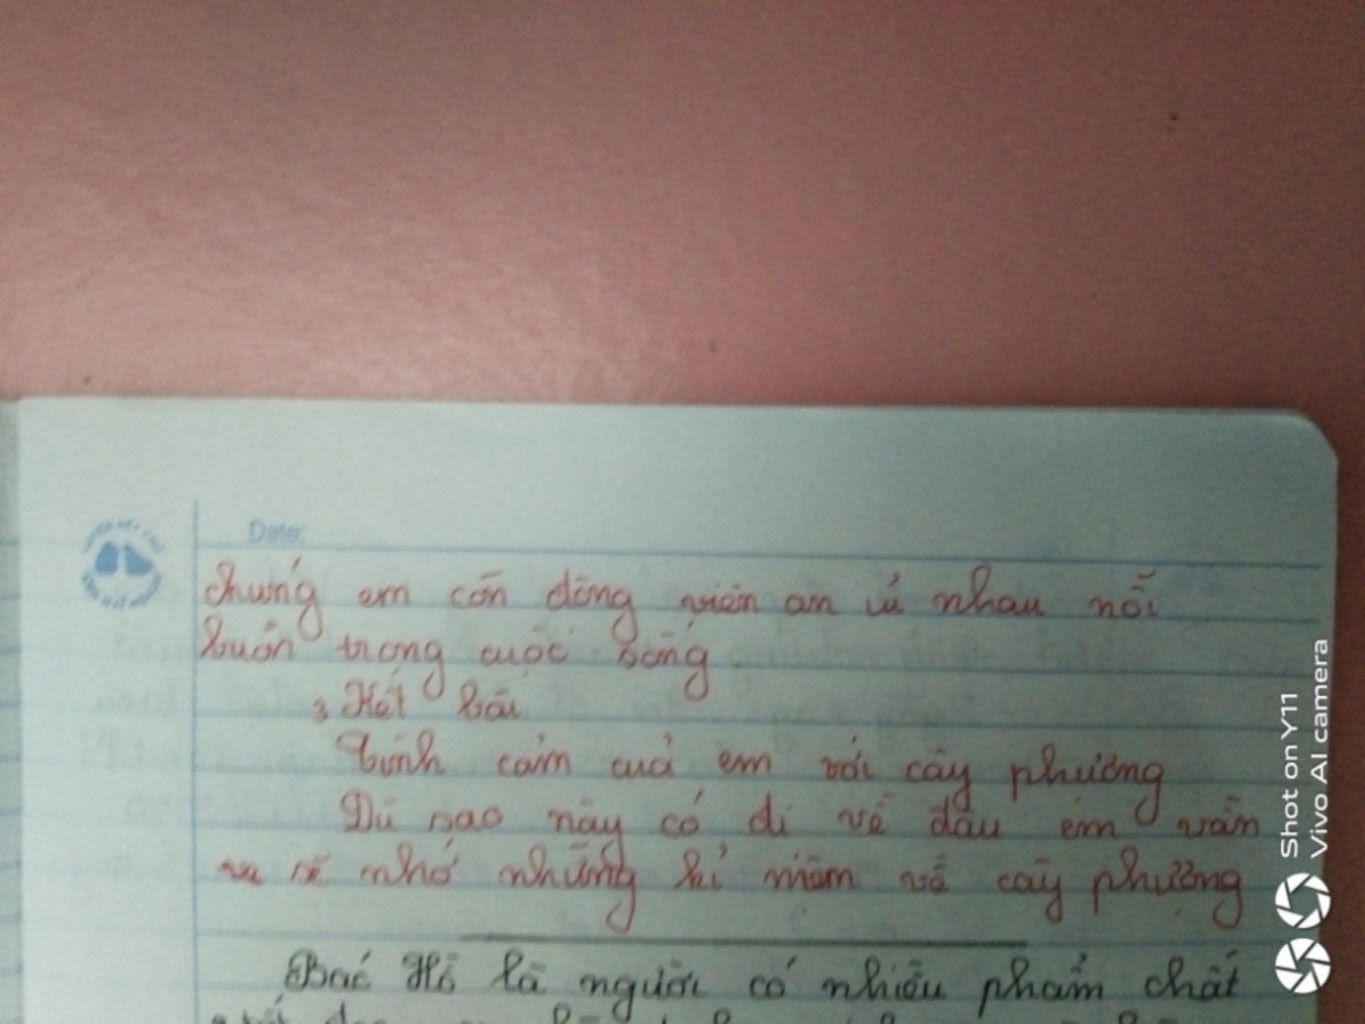 Date:
chúng em còn động viên an ủi nhau nỗi
buồn trong cuộc sống.
3, Kết bài
Tình cảm cuả em với cây phượng
Dù sao này có đi về đâu em vẫn
và sẽ nhớ những kỉ niệm về cây phượng
Bác Hồ là người có nhiều phẩm chất
Shot on Y11
Vivo AI camera